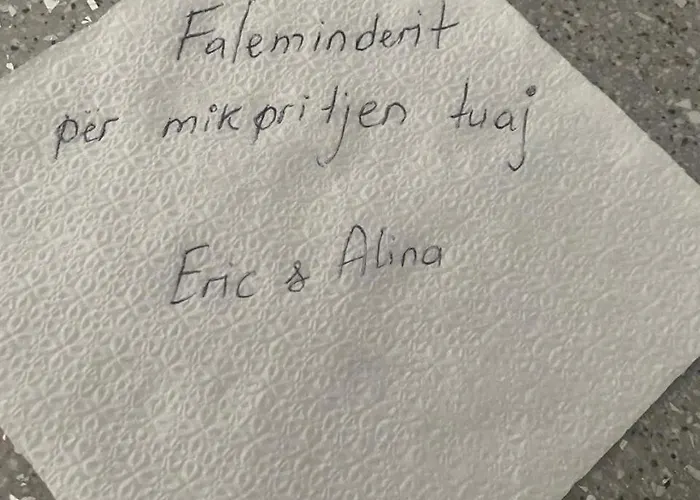 Faleminderit
për mikpritjen tuaj
Eric & Alina